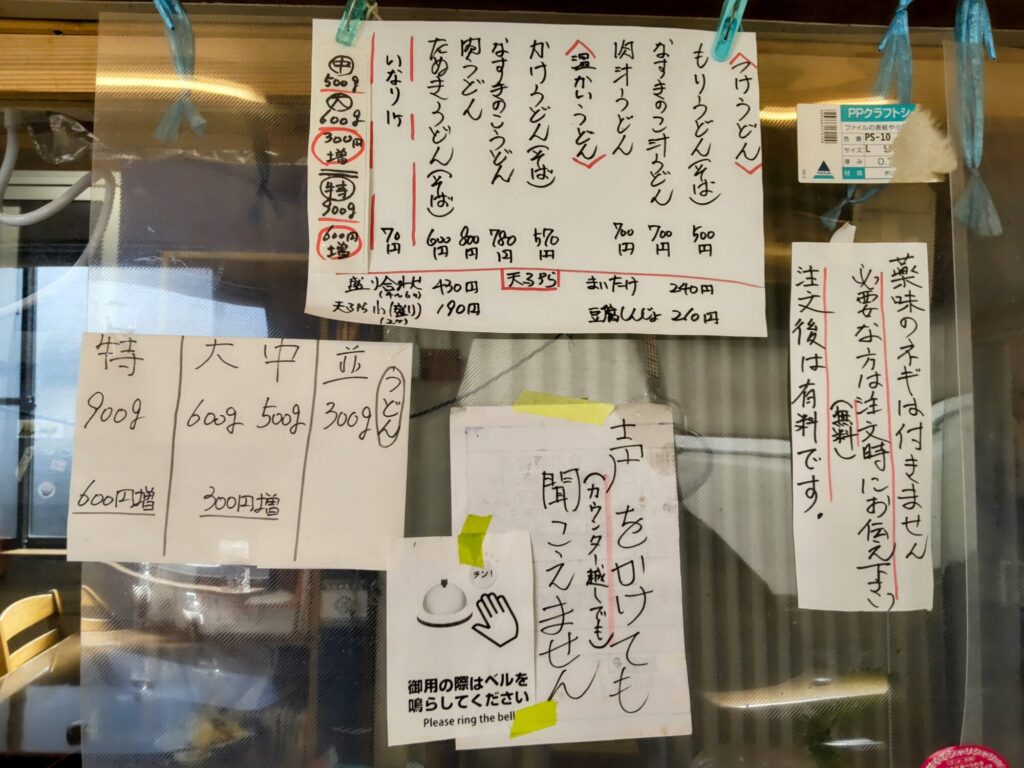 〈つけうどん〉
もりうどん(そば) 500円
なすきのこ汁うどん 700円
肉汁うどん 700円
〈温かいうどん〉
かけうどん(そば) 570円
なすきのこうどん 780円
肉うどん 800円
たぬきうどん(そば) 600円
いなり1ケ 70円
中
500g
大
600g
300円
増
特
900g
600円
増
天ぷら
盛り合わせ 430円
天ぷら小(盛り) 190円
まいたけ 240円
豆腐しんじょ 210円
PPクラフトシ
ファイルの表紙や小
色番 PS-10
サイズ L
厚み 0.7
材質
薬味のネギは付きません
必要な方は注文時にお伝え下さい
(無料)
注文後は有料です。
うどん
並 300g
中 500g
大 600g
300円増
特 900g
600円増
声をかけても
(カウンター越しでも)
聞こえません
チン!
御用の際はベルを
鳴らしてください
Please ring the bell